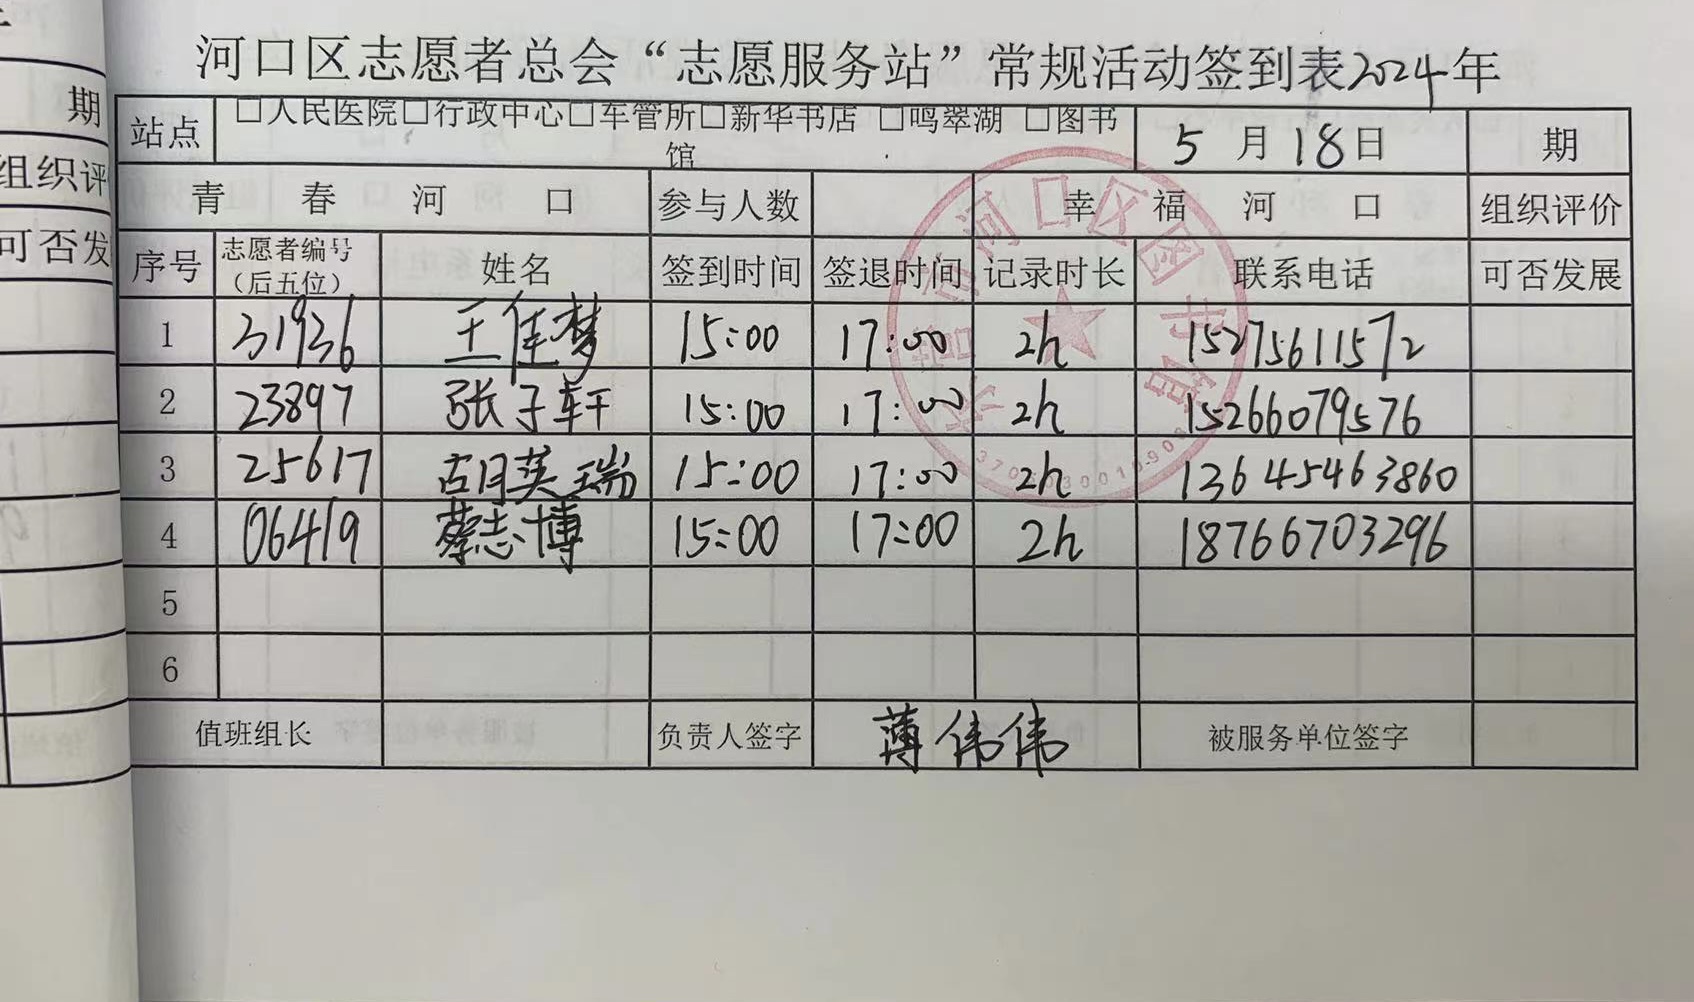 期
组织评
可否发
河口区志愿者总会“志愿服务站”常规活动签到表2024年
站点 □人民医院□行政中心□车管所□新华书店 □鸣翠湖 □图书馆 5月18日 期
青春河口 参与人数 幸福河口 组织评价
序号 志愿者编号（后五位） 姓名 签到时间 签退时间 记录时长 联系电话 可否发展
1 31936 王佳梦 15:00 17:00 2h 15275611572
2 23897 张子轩 15:00 17:00 2h 15266079576
3 25617 胡英瑞 15:00 17:00 2h 13645463860
4 06419 蔡志博 15:00 17:00 2h 18766703296
5
6
值班组长 负责人签字 薄伟伟 被服务单位签字
东营市河口区图书馆